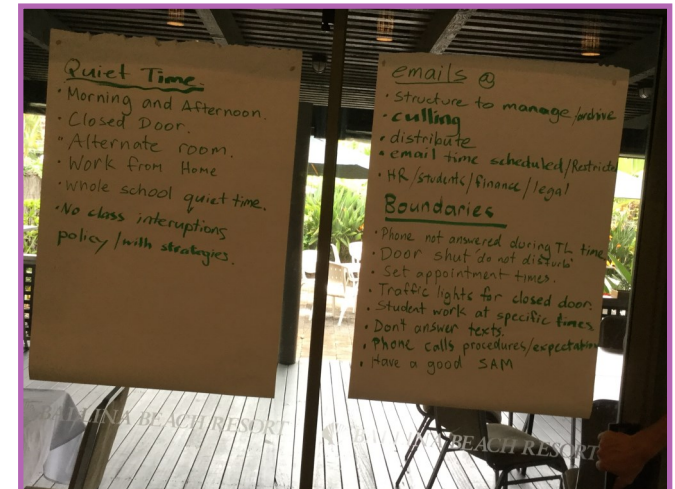 Quiet Time.
• Morning and Afternoon.
• Closed Door.
• Alternate room.
• Work from Home
• Whole school quiet time.
• No class interuptions
policy / with strategies.
emails @
• Structure to manage/archive
• culling
• distribute
• email time scheduled/Restricted
• HR/students/finance/legal
Boundaries
• Phone not answered during TL time
• Door shut 'do not disturb'
• Set appointment times.
• Traffic lights for closed door.
• Student work at specific times
• Dont answer texts.
• Phone calls procedures/expectation
• Have a good SAM
BALLINA BEACH RESORT
BALLINA BEACH RESORT